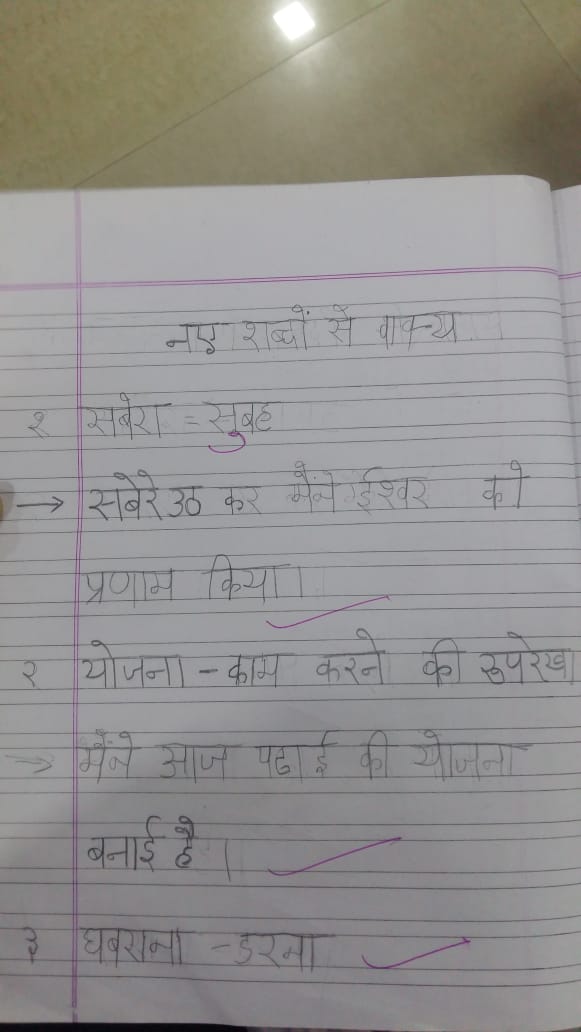 नए शब्दों से वाक्य
१ सबेरा = सुबह
→ सबेरे उठ कर मैंने ईश्वर को
प्रणाम किया।
२ योजना - काम करने की रुपरेखा
→ मैंने आज पढाई की योजना
बनाई है।
३ घबराना - डरना